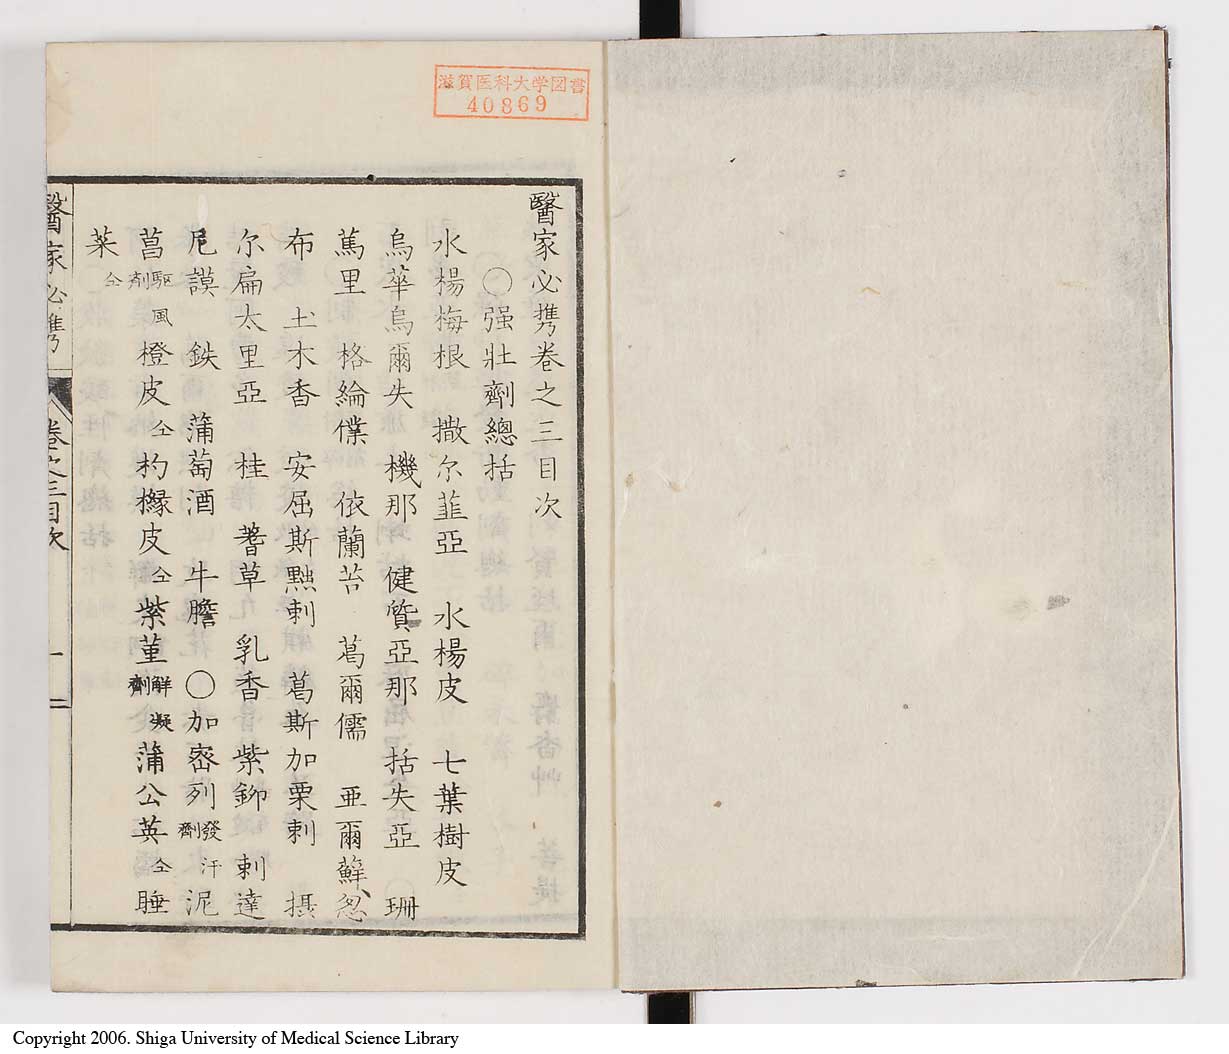 滋賀医科大学図書
40869
醫家必攜卷之三目次
○强壯劑總括
水楊梅根 撒尔韮亞 水楊皮 七葉樹皮
烏華烏爾失 機那 健質亞那 括失亞 珊
篤里 格綸僕 依蘭苔 葛爾儒 亜爾鮮忽
布 土木香 安屈斯黙刺 葛斯加栗刺 摂
尔扁太里亞 桂 蓍草 乳香 紫鉚 刺達
尼謨 鉄 蒲萄酒 牛膽 ○加密列發汗劑 泥
菖驅風劑 橙皮仝 枸櫞皮仝 紫菫解凝劑 蒲公英仝 睡
菜仝
醫家必攜 卷之三目次 一
Copyright 2006. Shiga University of Medical Science Library